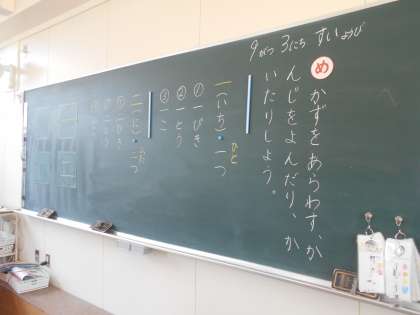 9がつ 3にち すいようび
め かずをあらわす、か
んじをよんだり、か
いたりしよう。
一(いち)・一つ
ひと
①一ぴき
②一とう
③一こ
二(に)・二つ
ふた
①二ひき
②二とう
③二こ